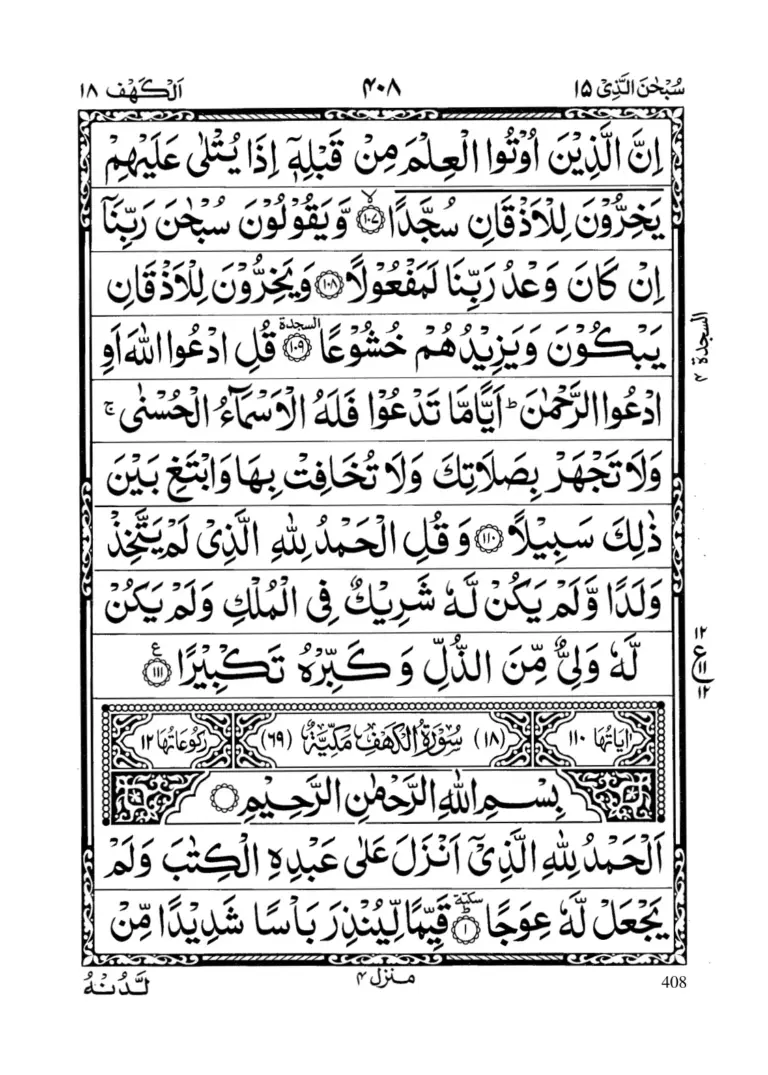 سُبْحٰنَ الَّذِیْ ١٥ ۴۰۸ اَلْكَهْف ١٨
اِنَّ الَّذِیْنَ اُوْتُوا الْعِلْمَ مِنْ قَبْلِهٖۤ اِذَا یُتْلٰی عَلَیْهِمْ
یَخِرُّوْنَ لِلْاَذْقَانِ سُجَّدًا ۙ﴿۱۰۷﴾ وَّیَقُوْلُوْنَ سُبْحٰنَ رَبِّنَاۤ
اِنْ كَانَ وَعْدُ رَبِّنَا لَمَفْعُوْلًا ﴿۱۰۸﴾ وَیَخِرُّوْنَ لِلْاَذْقَانِ
یَبْكُوْنَ وَیَزِیْدُهُمْ خُشُوْعًا ﴿۱۰۹﴾ السجدة قُلِ ادْعُوا اللّٰهَ اَوِ
ادْعُوا الرَّحْمٰنَ ؕ اَیًّا مَّا تَدْعُوْا فَلَهُ الْاَسْمَآءُ الْحُسْنٰی ۚ
وَلَا تَجْهَرْ بِصَلَاتِكَ وَلَا تُخَافِتْ بِهَا وَابْتَغِ بَیْنَ
ذٰلِكَ سَبِیْلًا ﴿۱۱۰﴾ وَ قُلِ الْحَمْدُ لِلّٰهِ الَّذِیْ لَمْ یَتَّخِذْ
وَلَدًا وَّلَمْ یَكُنْ لَّهٗ شَرِیْكٌ فِی الْمُلْكِ وَلَمْ یَكُنْ
لَّهٗ وَلِیٌّ مِّنَ الذُّلِّ وَ كَبِّرْهُ تَكْبِیْرًا ﴿۱۱۱﴾ ع
السجدة ۴
١٢
ع
١١
١٢
اٰیَاتُهَا ١١٠ (١٨) سُوْرَةُ الْكَهْفِ مَكِّیَّةٌ (٦٩) رُكُوْعَاتُهَا ١٢
بِسْمِ اللّٰهِ الرَّحْمٰنِ الرَّحِیْمِ
اَلْحَمْدُ لِلّٰهِ الَّذِیْۤ اَنْزَلَ عَلٰی عَبْدِهِ الْكِتٰبَ وَلَمْ
یَجْعَلْ لَّهٗ عِوَجًا ؕ سكتة ﴿۱﴾ قَیِّمًا لِّیُنْذِرَ بَاْسًا شَدِیْدًا مِّنْ
لَّدُنْهُ منزل ۴ 408